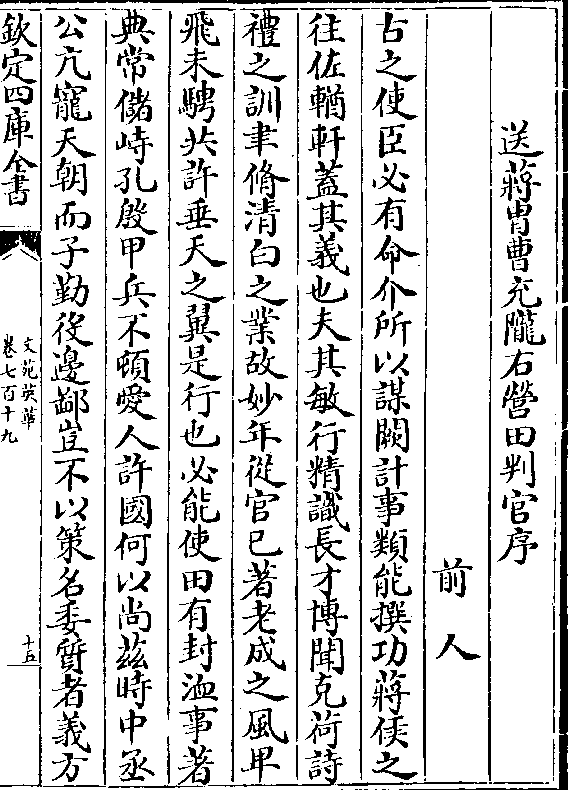 送蔣胄曹充隴右營田判官序
前人
古之使臣必有命介所以謀闕計事類能撰功蔣侯之
往佐輶軒蓋其義也夫其敏行精識長才博聞克荷詩
禮之訓聿脩清白之業故妙年從官已著老成之風甲
飛未騁共許垂天之翼是行也必能使田有封洫事著
典常儲峙孔殷甲兵不頓愛人許國何以尚茲時中丞
公亢寵天朝而子勤役邊鄙豈不以策名委質者義方
欽定四庫全書
文苑英華
卷七百十九
十五